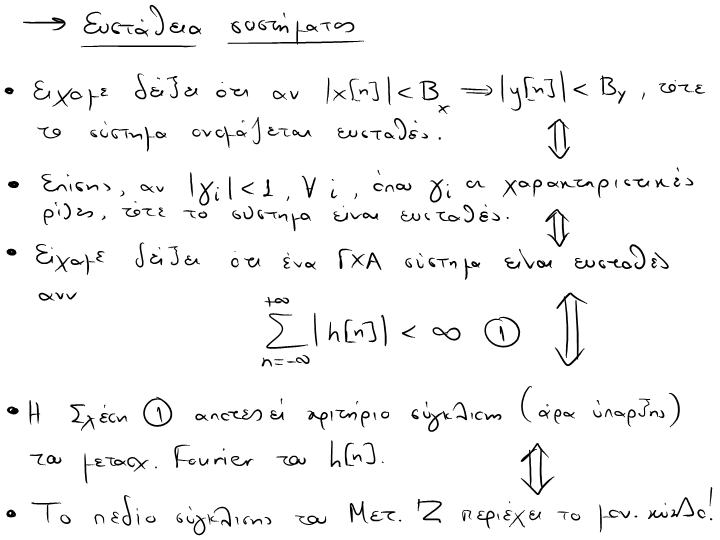 → Ευστάθεια συστήματος
• Είχαμε δείξει ότι αν |x[n]| < Bₓ ⟹ |y[n]| < By , τότε
το σύστημα ονομάζεται ευσταθές. ⇕
• Επίσης, αν |γᵢ| < 1 , ∀ i , όπου γᵢ οι χαρακτηριστικές
ρίζες, τότε το σύστημα είναι ευσταθές. ⇕
• Είχαμε δείξει ότι ένα ΓΧΑ σύστημα είναι ευσταθές
ανν
+∞
∑ |h[n]| < ∞ ① ⇕
n=-∞
• Η Σχέση ① αποτελεί κριτήριο σύγκλισης (άρα ύπαρξης)
του μετασχ. Fourier του h[n]. ⇕
• Το πεδίο σύγκλισης του Μετ. Z περιέχει το μον. κύκλο!